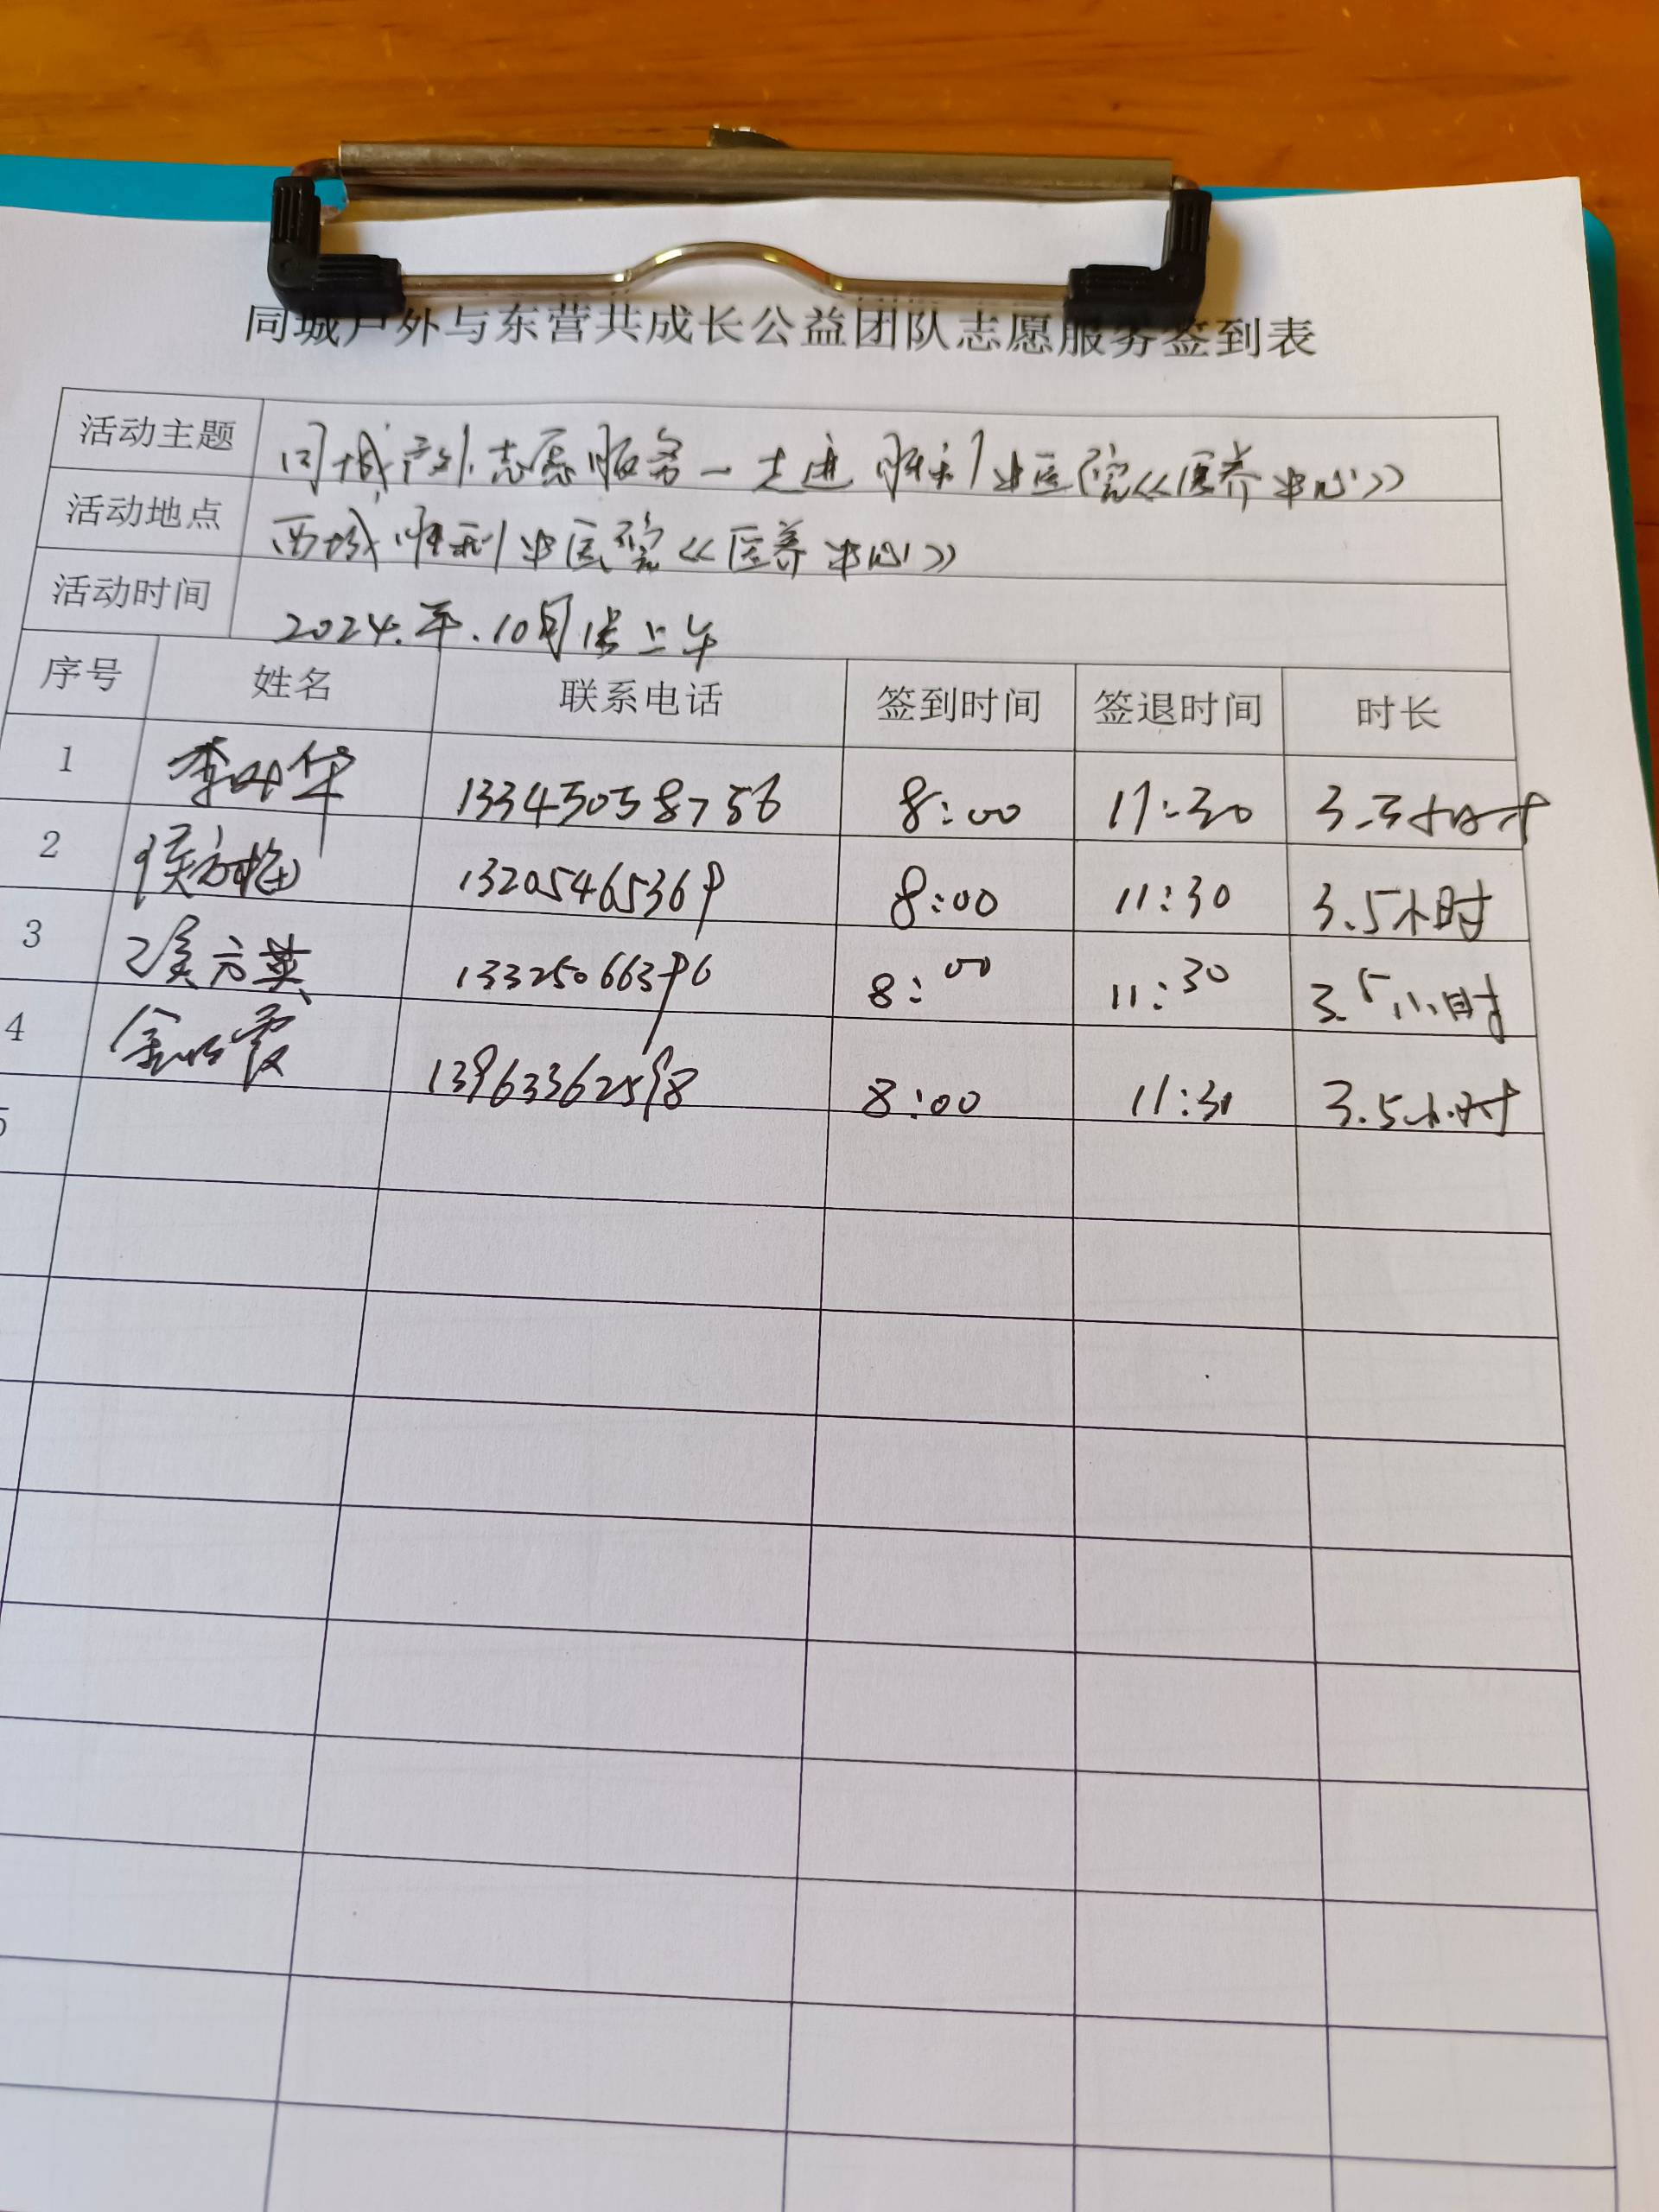 同城户外与东营共成长公益团队志愿服务签到表
活动主题 同城户外志愿服务一走进胜利中医院《医养中心》
活动地点 西城胜利中医院《医养中心》
活动时间 2024.年.10月 上午
序号 姓名 联系电话 签到时间 签退时间 时长
1 李 华 13345058756 8:00 11:30 3.5小时
2 侯方梅 13205465369 8:00 11:30 3.5小时
3 侯方英 13325066396 8:00 11:30 3.5小时
4 金 霞 13963362598 8:00 11:30 3.5小时
5